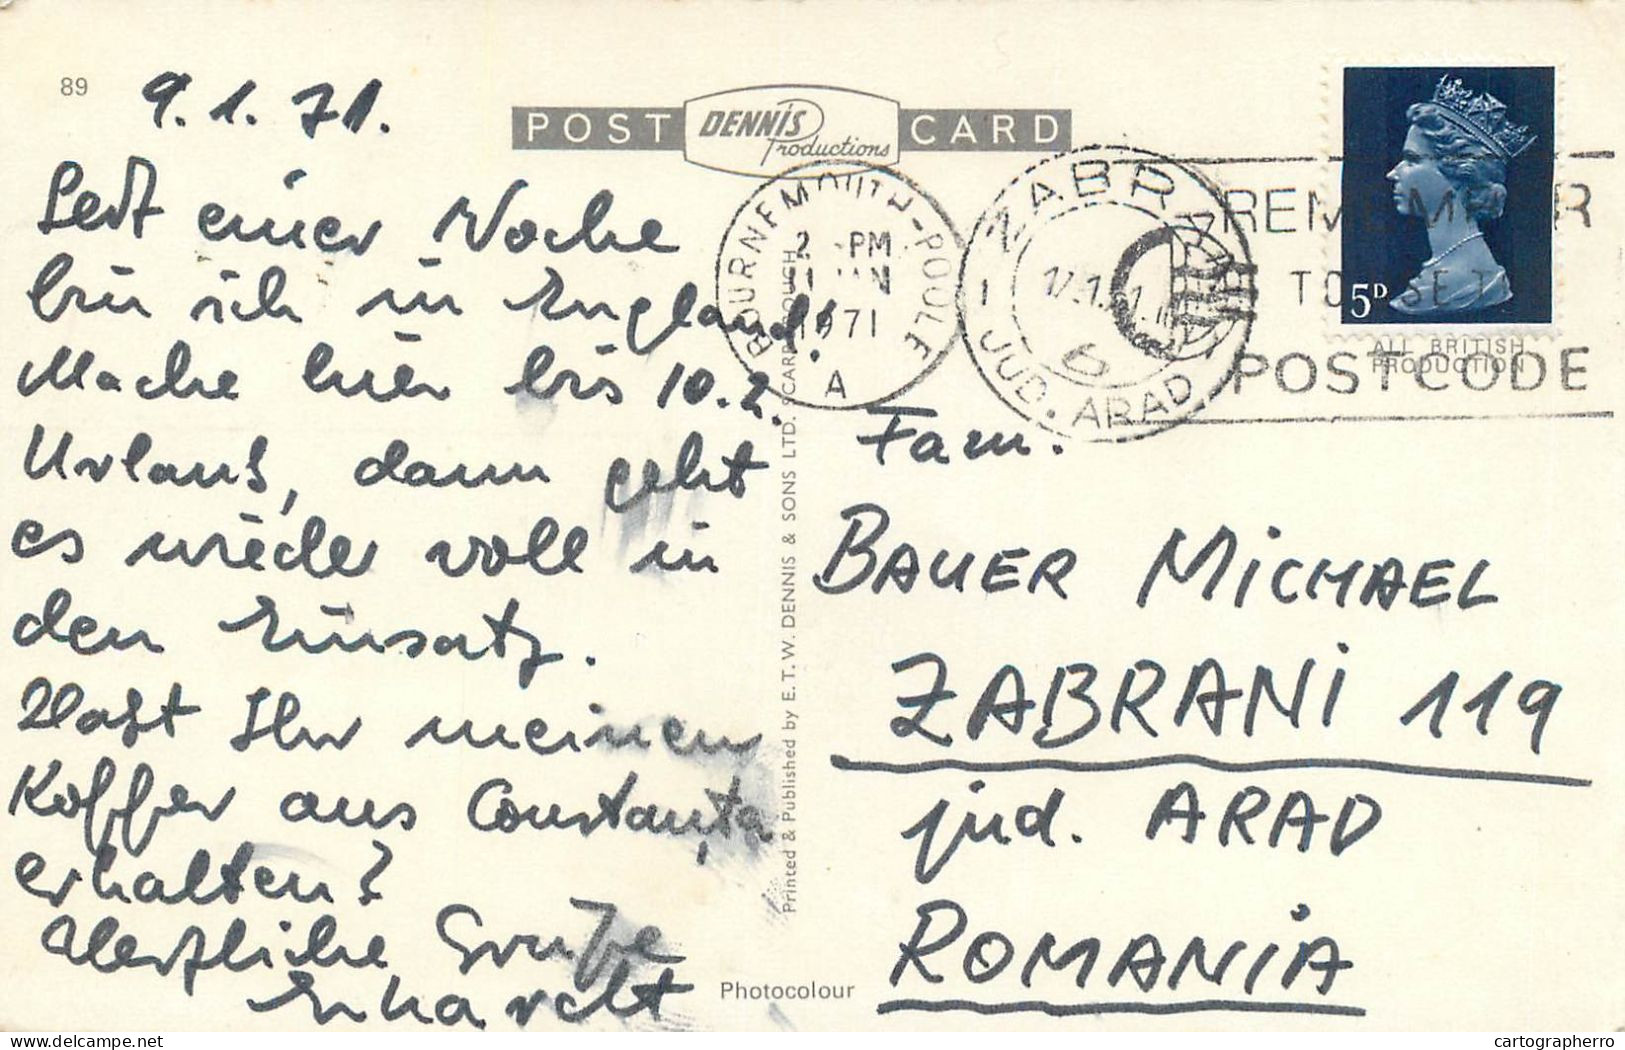 89
9.1.71.
POST DENNIS Productions CARD
Seit einer Woche
bin ich in England!
Mache hier bis 10.2.
Urlaub, dann geht
es wieder voll in
den Einsatz.
Habt Ihr meinen
Koffer aus Constanţa
erhalten?
Herzliche Grüße
Erhardt
Printed & Published by E. T. W. DENNIS & SONS LTD. SCARBOROUGH
Photocolour
BOURNEMOUTH-POOLE
2 -PM
11 JAN
1971
A
ZABRANI
JUD. ARAD
6
REMEMBER
TO USE THE
POSTCODE
5D
ALL BRITISH
PRODUCTION
Fam.
BAUER MICHAEL
ZABRANI 119
jud. ARAD
ROMANIA
cartographerro
delcampe.net